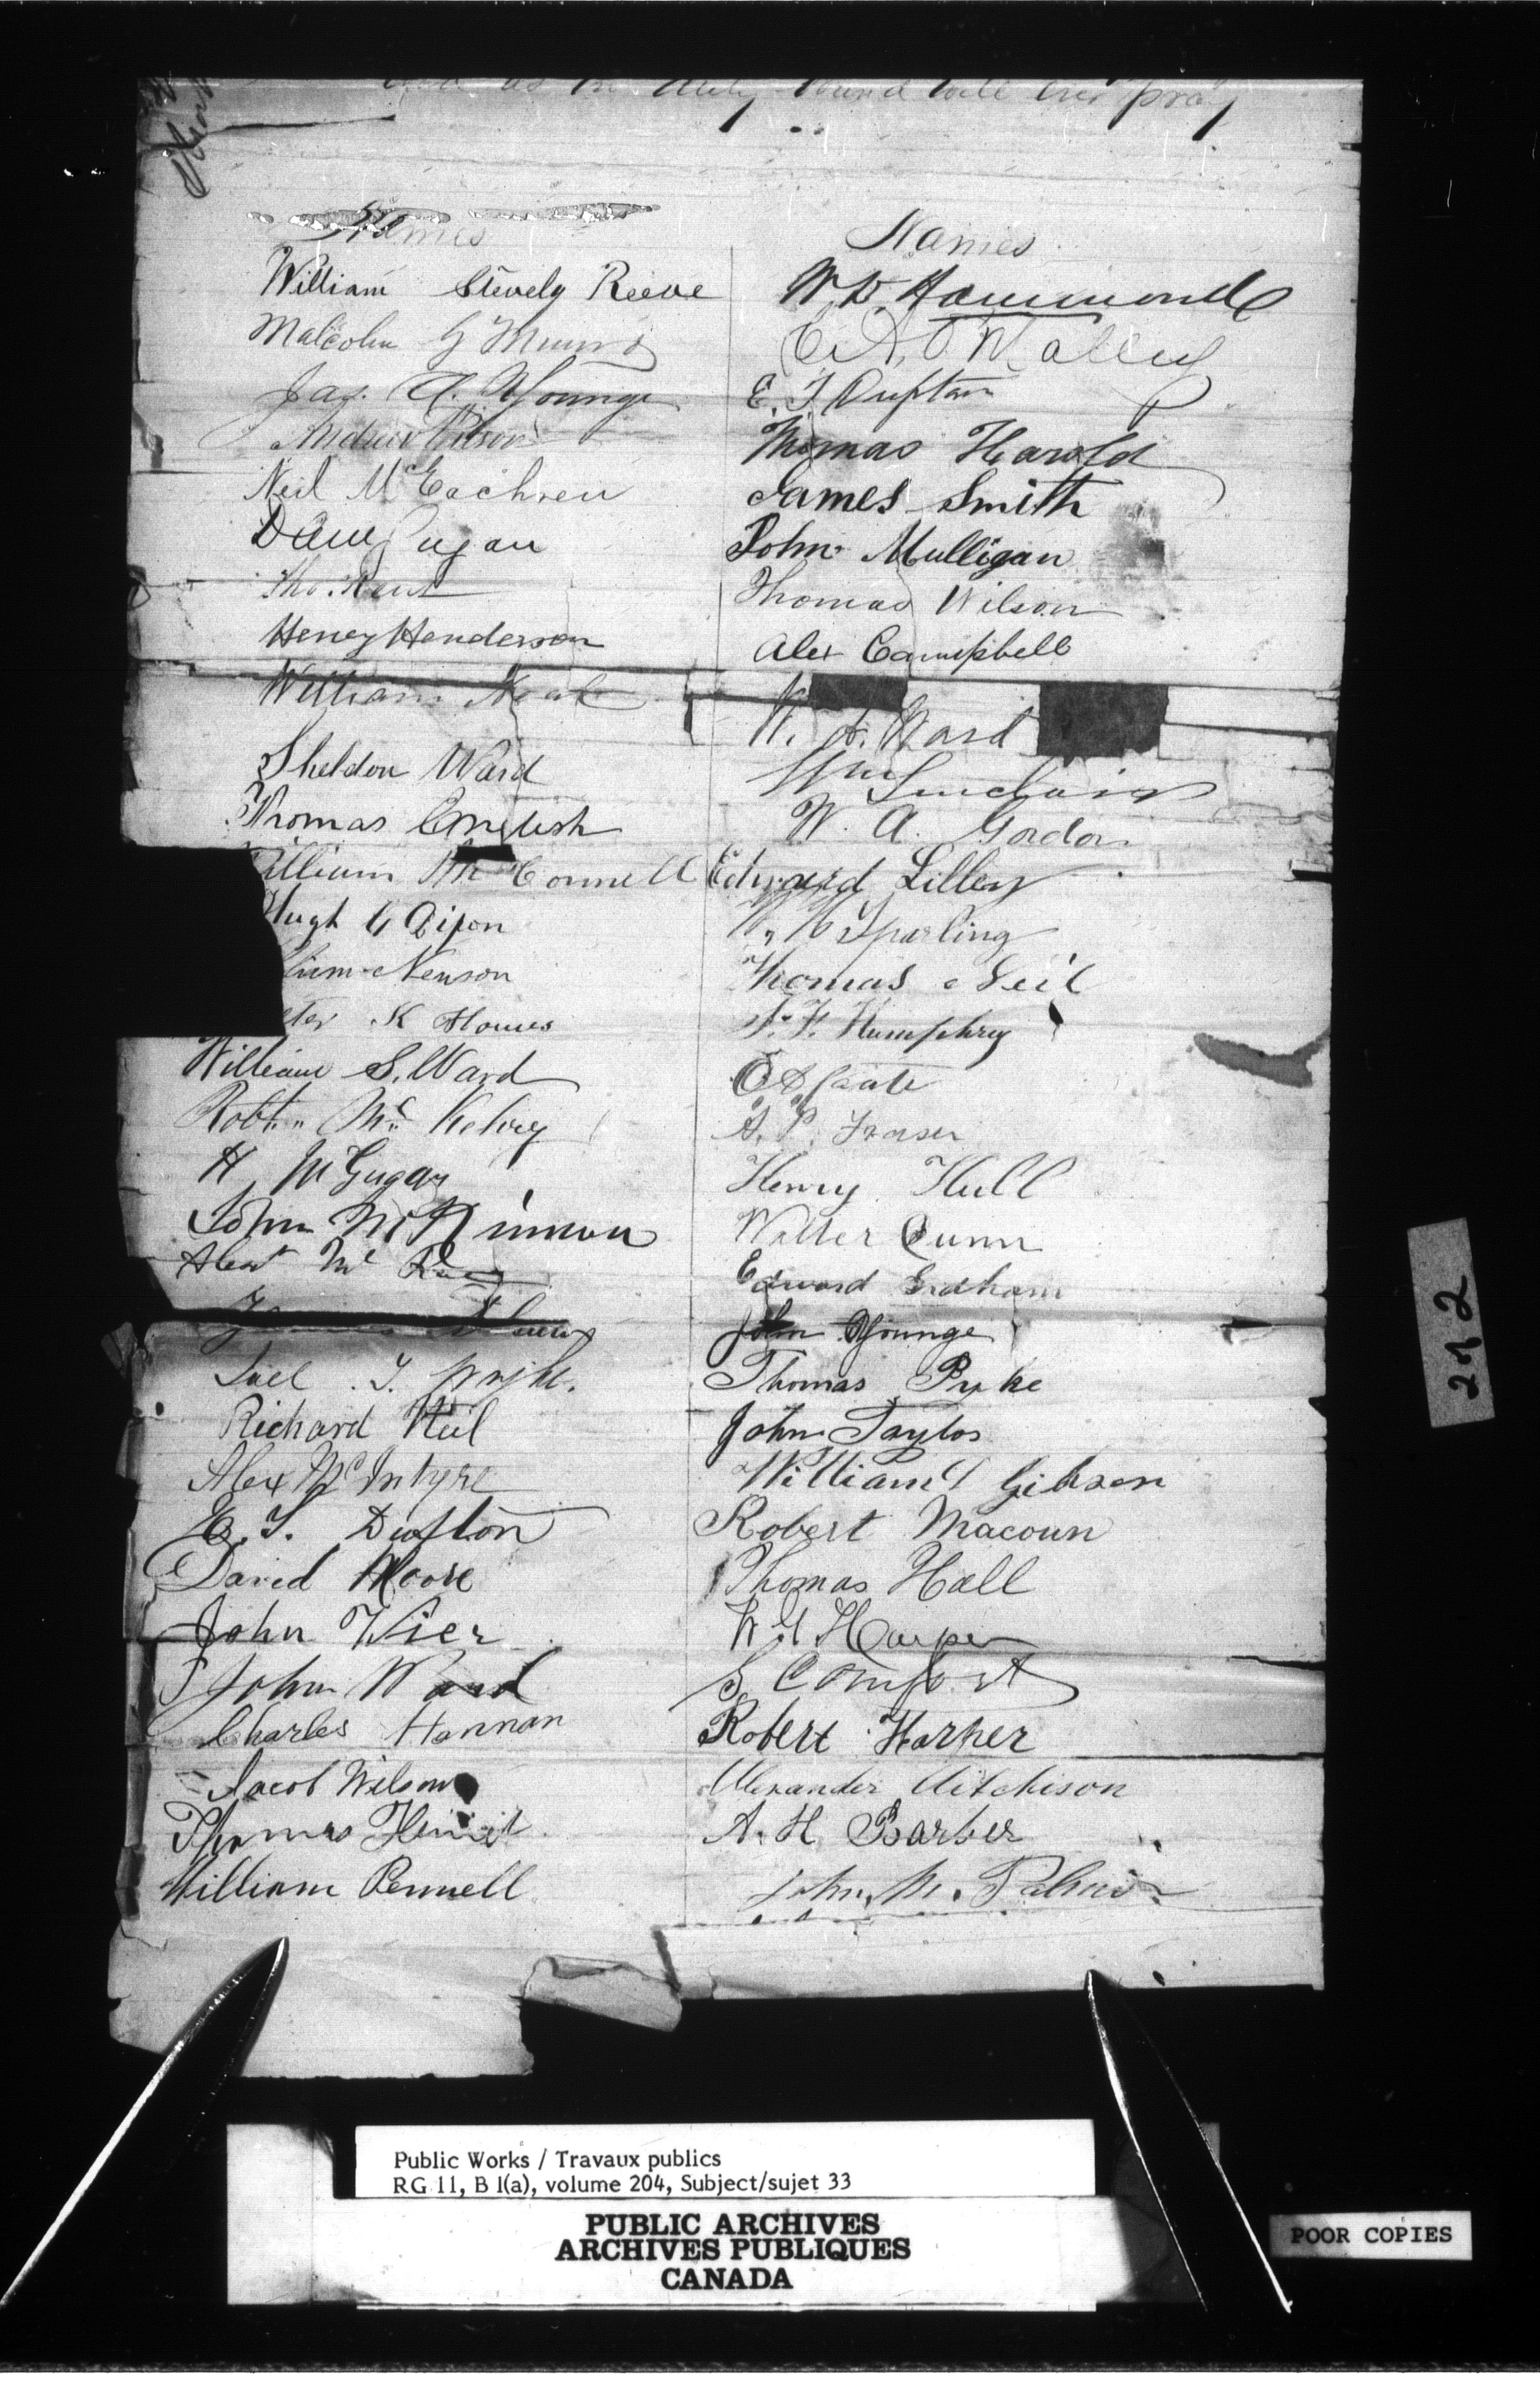 and as in duty bound will ever pray
Names
William Stevely Reeve
Malcolm G Munro
Jas. A. Younge
Andrew Wilson
Neil McEachren
Dan Gugan
Tho. Kent
Heney Henderson
William Neal
Sheldon Ward
Thomas English
William McConnell
Hugh Dixon
liam Newson
ter K Homes
William S. Ward
Robt. Mc Kelvey
H McGugan
John McKinnon
Alexr Mc Rae
Richard Neil
Alex McIntyre
E. T. Dufton
David Moore
John Wier
John Ward
Charles Hannan
Jacob Wilson
Thomas
William Pennell
Names
W W Hammond
E A O Malley
E. T Dufton
Thomas Harold
James Smith
John Mulligan
Thomas Wilson
Alex Campbell
W. A. Ward
Wm Sinclair
W. A. Gordon
Edward Lilley
W. Sparling
Thomas Neil
Humphrey
A. P. Fraser
Henry Hull
Walter Dunn
Edward
John Younge
Thomas Pyke
John Taylor
William Gibson
Robert Macoun
Thomas Hall
W. Harper
S. Comfort
Robert Harper
Alexander Aitchison
A. H. Barber
John M. Palmer
272
Public Works / Travaux publics
RG 11, B 1(a), volume 204, Subject/sujet 33
PUBLIC ARCHIVES
ARCHIVES PUBLIQUES
CANADA
POOR COPIES